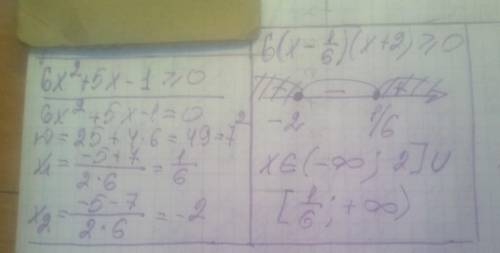 6x²+5x-1≥0
6x²+5x-1=0
D=25+4·6=49=7²
x₁=(-5+7)/(2·6)=1/6
x₂=(-5-7)/(2·6)=-2
6(x-1/6)(x+2)≥0
+ - +
-2 1/6
x∈(-∞; 2]∪
[1/6; +∞)